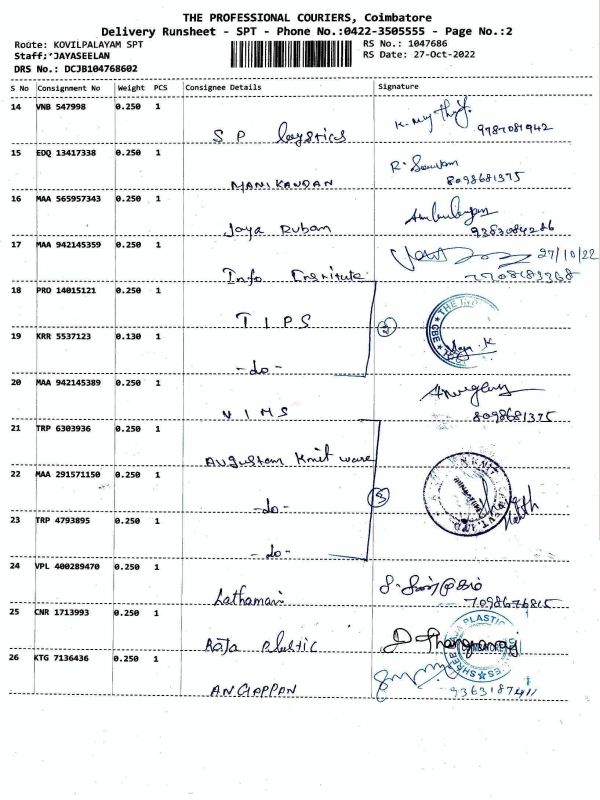 THE PROFESSIONAL COURIERS, Coimbatore
Delivery Runsheet - SPT - Phone No.:0422-3505555 - Page No.:2
Route: KOVILPALAYAM SPT
RS No.: 1047686
Staff: JAYASEELAN
RS Date: 27-Oct-2022
DRS No.: DCJB104768602
S No Consignment No Weight PCS Consignee Details Signature
14 VNB 547998 0.250 1
S P 9787081942
15 EDQ 13417338 0.250 1
MANIKANDAN 8098681375
16 MAA 565957343 0.250 1
Jaya Ruban 9383084286
17 MAA 942145359 0.250 1
27/10/22
Info Institute
18 PRO 14015121 0.250 1
TIPS
19 KRR 5537123 0.130 1
-do-
20 MAA 942145389 0.250 1
VIMS 8098681375
21 TRP 6303936 0.250 1
Augustan Knit ware
22 MAA 291571150 0.250 1
-do-
23 TRP 4793895 0.250 1
-do-
24 VPL 400289470 0.250 1
7098676815
25 CNR 1713993 0.250 1
PLASTIC
Raja Plastic
26 KTG 7136436 0.250 1
ANGAPPAN 9363187411